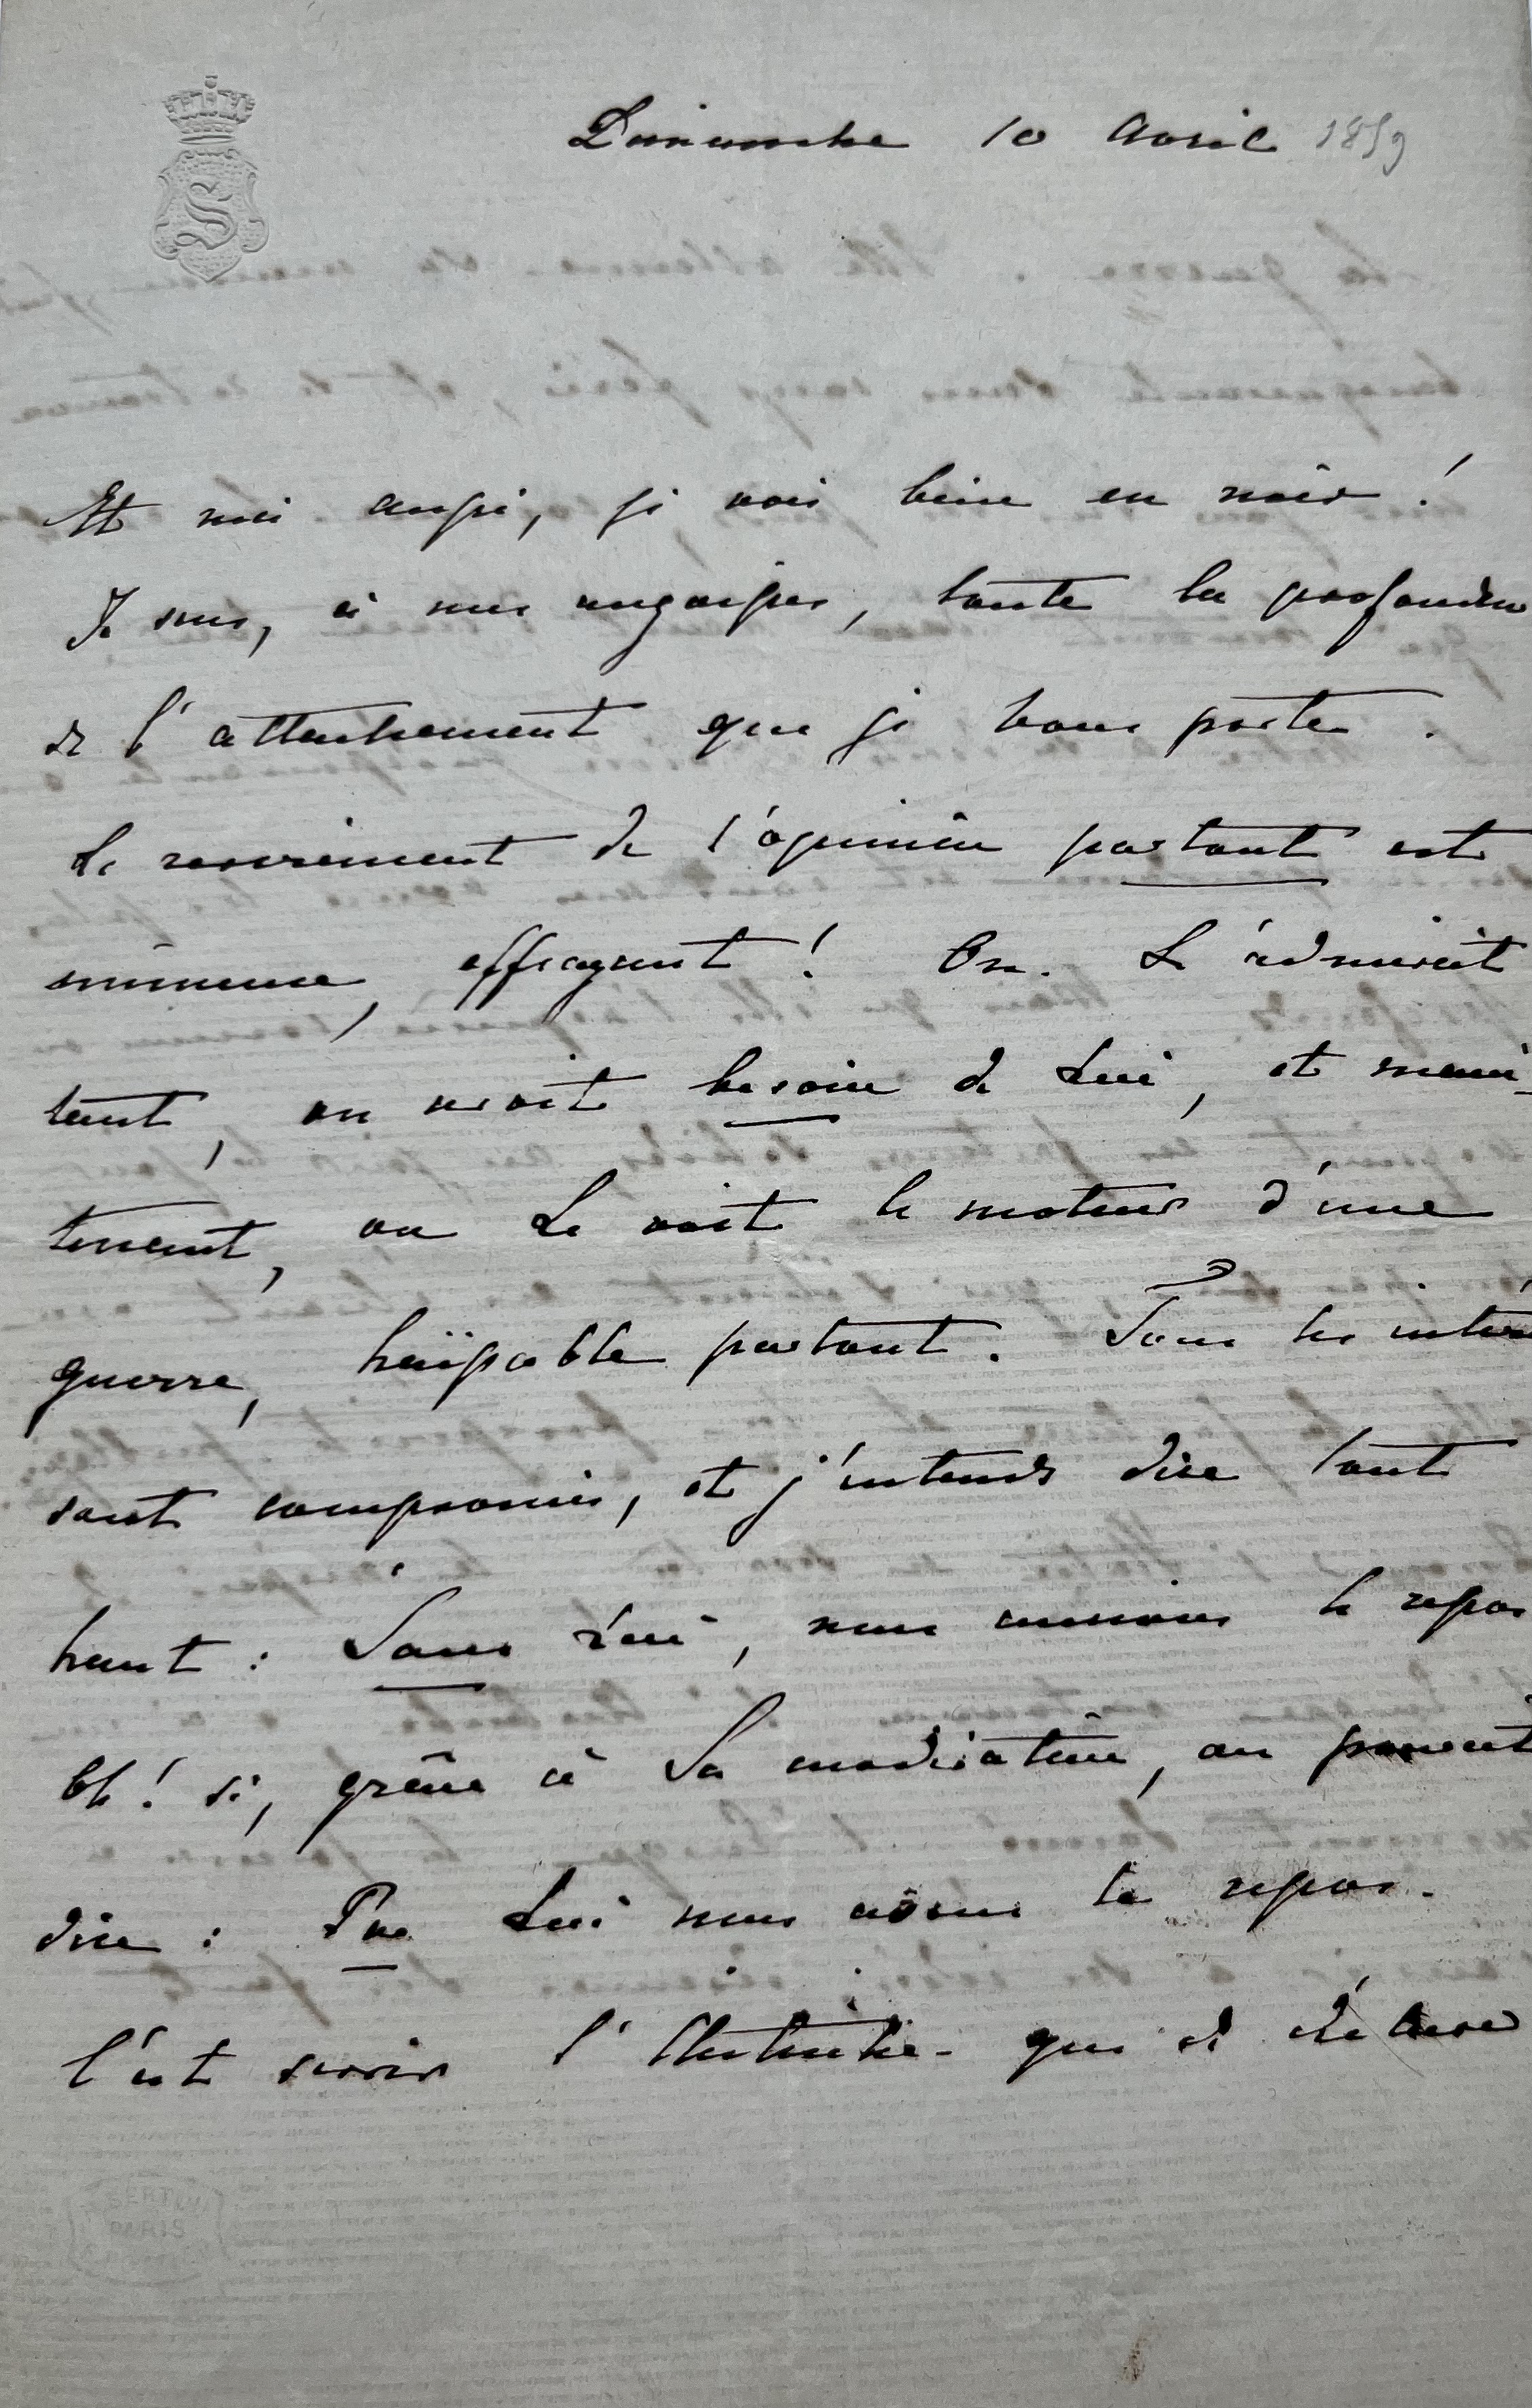 S
Dimanche 10 avril 1859
Et moi aussi, je vois bien en noir !
Je sens, à mes angoisses, toute la profondeu
de l'attachement que je vous porte .
Le revirement de l'opinion partout est
immense, effrayant ! On L'admirait
tant, on avait besoin de Lui, et main-
tenant, on Le voit le moteur d'une
guerre, haïssable partout. Tous les intérê
sont compromis, et j'entends dire tout
haut : Sans Lui, nous aurions le repos
Oh ! si, grâce à Sa médiation, on pouvait
dire : Par Lui nous avons le repos.
C'est servir l'Autriche que de déclarer
SERTON
PARIS